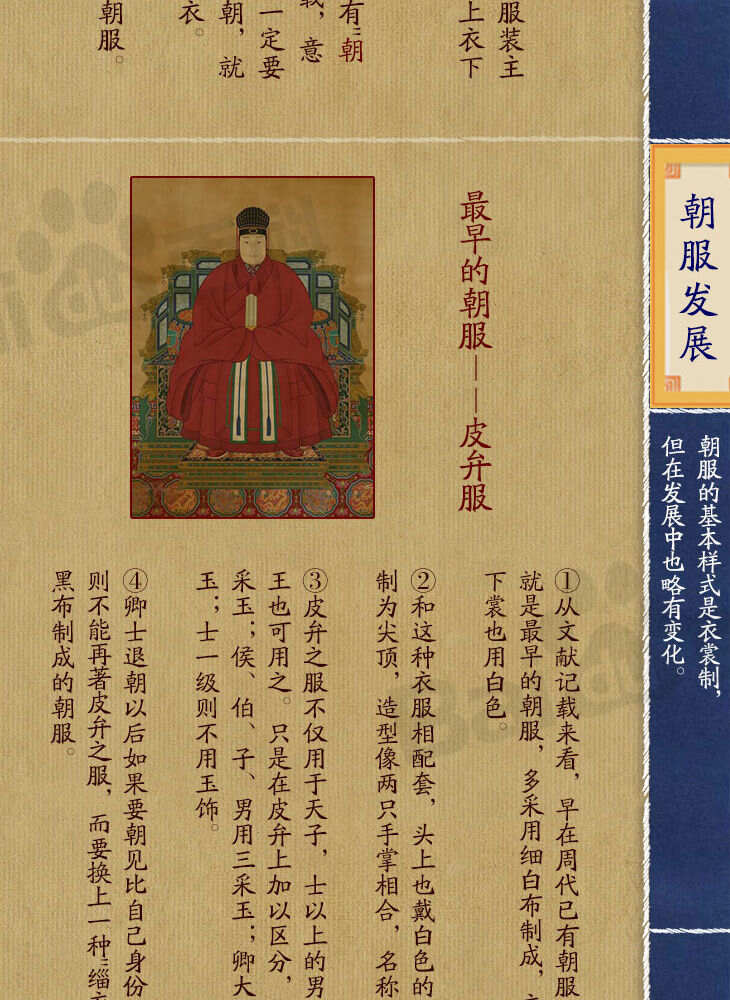 朝服发展
朝服的基本样式是衣裳制，
但在发展中也略有变化。
服装主
上衣下
有“朝
，意
一定要
朝，就
衣。
朝服。
最早的朝服——皮弁服
①从文献记载来看，早在周代已有朝服
就是最早的朝服，多采用细白布制成，
下裳也用白色。
②和这种衣服相配套，头上也戴白色的
制为尖顶，造型像两只手掌相合，名称
③皮弁之服不仅用于天子，士以上的男
王也可用之。只是在皮弁上加以区分，
采玉；侯、伯、子、男用三采玉；卿大
玉；士一级则不用玉饰。
④卿士退朝以后如果要朝见比自己身份
则不能再著皮弁之服，而要换上一种“缁
黑布制成的朝服。